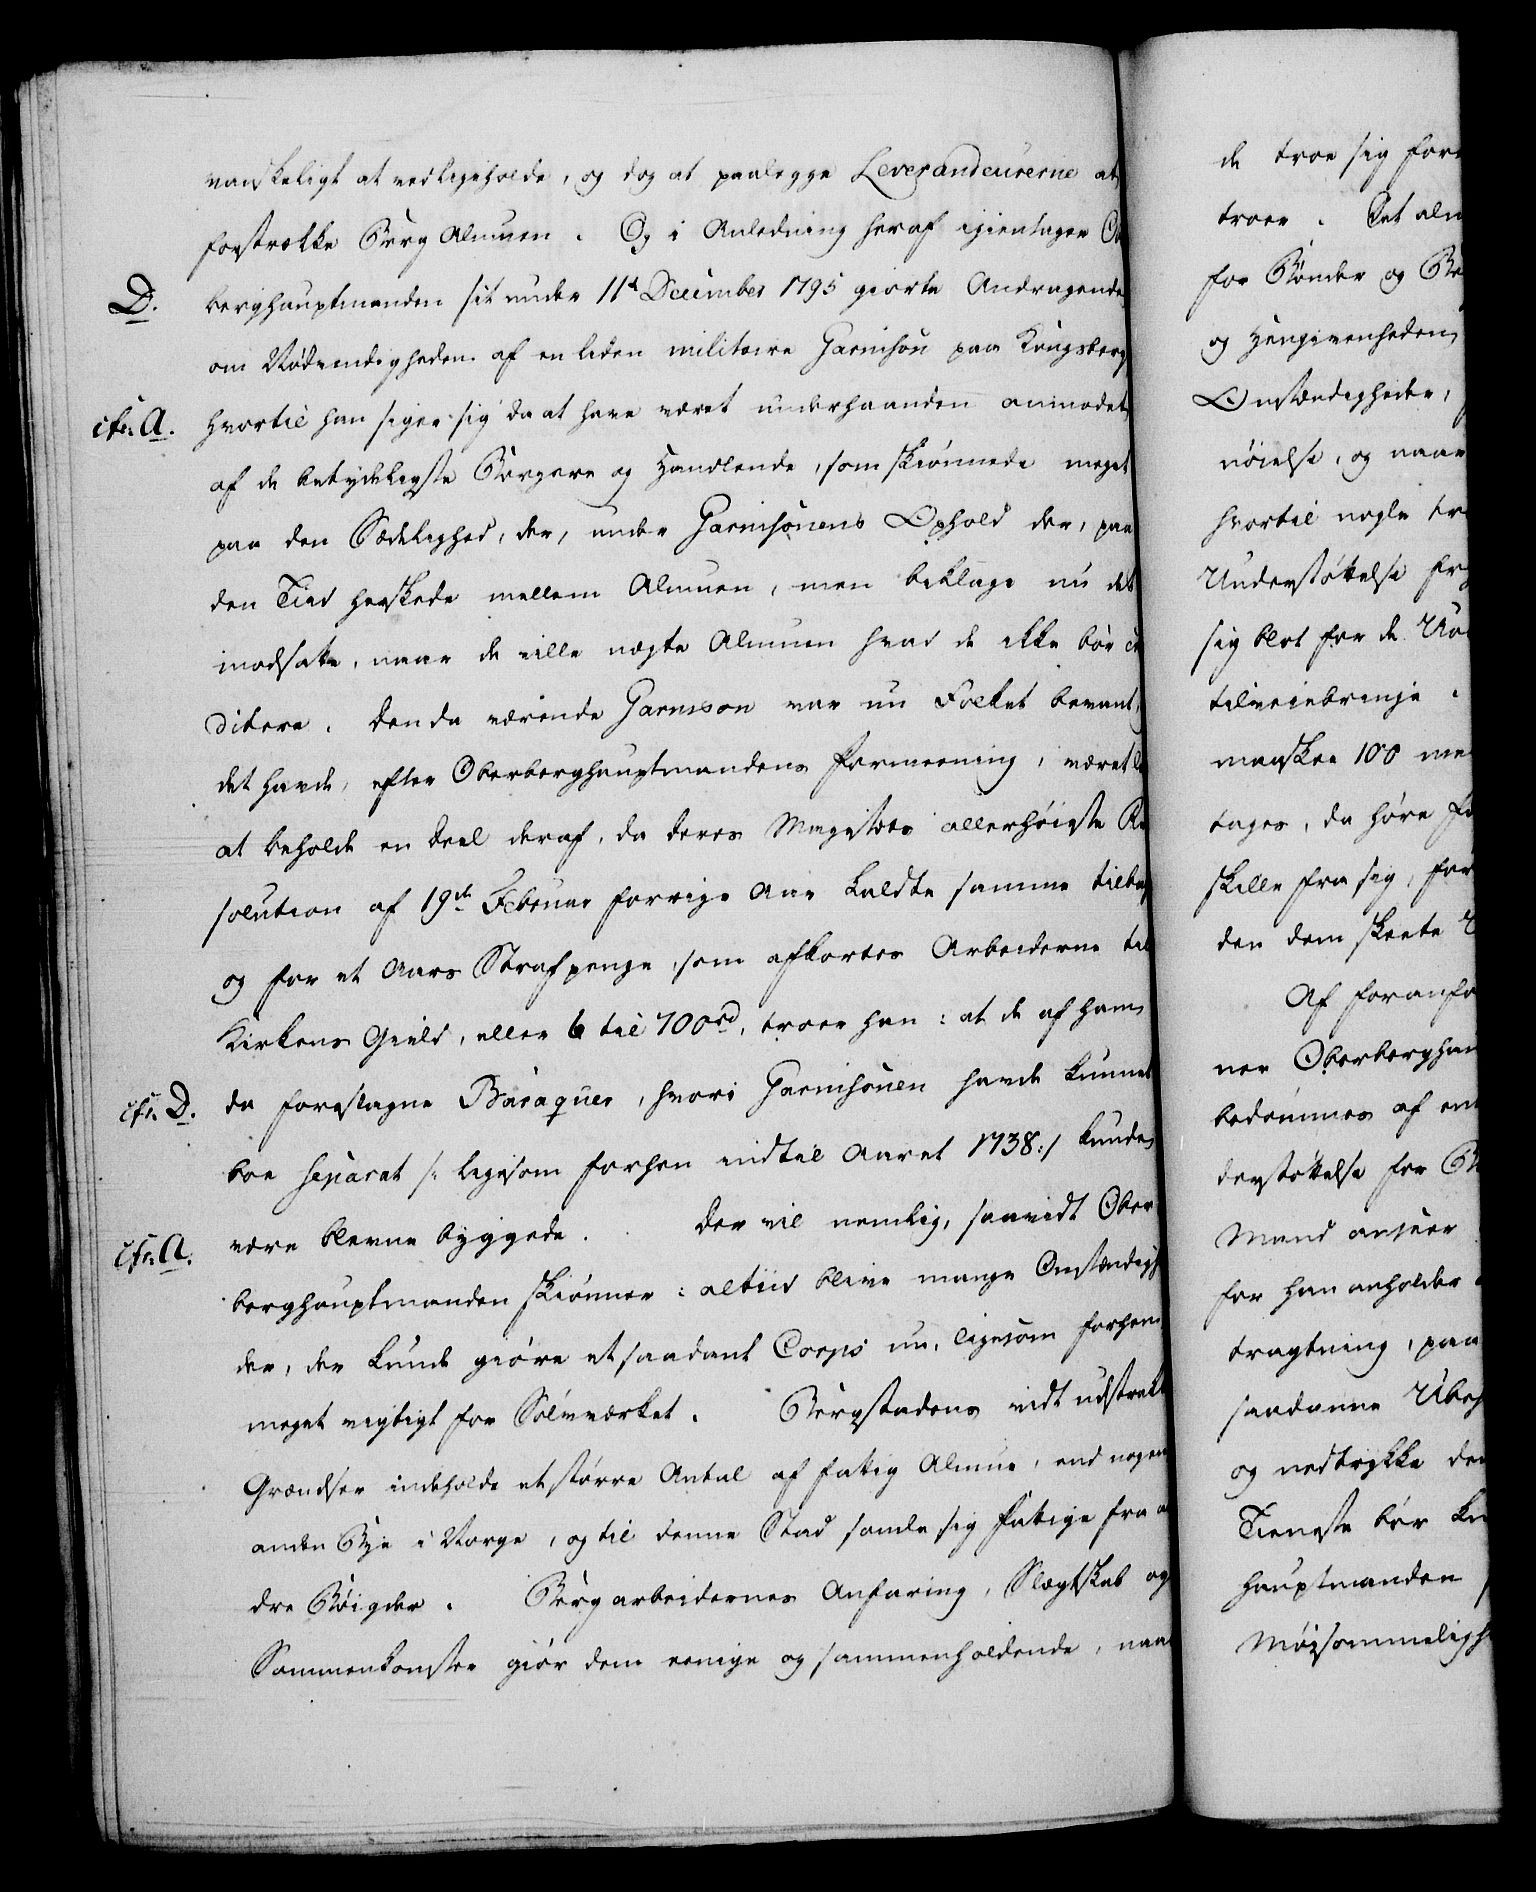 vanskeligt at vedligeholde, og dog at paalegge Leverandeurerne at
forstrække Berg Almuen. Og i Anledning heraf igientager Ob
D.
berghauptmanden sit under 11te December 1795 giorte Andragende
om Nødvendigheden af en liden militaire Garnison paa Kongsberg
cfr. A.
hvortil han siger sig da at have været underhaanden anmodet
af de betydeligste Borgere og Handlende, som skiønnede meget
paa den Sædelighed, der, under Garnisonens Ophold der, paa
den Tiid herskede mellem Almuen, men beklage nu det
modsatte, naar de ville nægte Almuen hvad de ikke bør cre
ditere. Den da værende Garnison var nu Folket bevant,
det havde, efter Oberberghauptmandens Formeening, været
at beholde en Deel deraf, da Deres Majestæts allerhøieste Re
solution af 19de Februar forrige Aar kaldte samme tilbage
og for et Aars Strafpenge, som afkortes Arbeiderne til
Kirkens Gield, eller 6 til 700rd, troer han: at de af ham
cfr. D.
da foreslagne Baraquer, hvori Garnisonen havde kunnet
boe separat /: ligesom forhen indtil Aaret 1738:/ kunde
cfr. A.
være blevne byggede. Der vil nemlig, saavidt Ober
berghauptmanden skiønner: altiid blive mange Omstændighe
der, der kunde giøre et saadant Corps nu, ligesom forhen
meget vigtigt for Sølvværket. Bergstadens vidt udstrakte
Grændser indeholde et større Antal af fattig Almue, end nogen
anden Bye i Norge, og til denne Stad samle sig Fattige fra an
dre Bøigder. Bergarbeidernes Anfaring, Slægtskab og
Sammenkomster giør dem eenige og sammenholdende, naar
de troe sig for
troer. Det alm
for Bønder og B
og Hengivenheden
Omstændigheder,
nøielse, og naar
hvortil nogle tr
Understøttelse fr
sig blot for de
tilveiebringe.
maaskee 100 me
tages, da høre
skille fra sig, for
den dem skeete
Af foranfø
ner Oberberghau
bedømmes af en
derstøttelse for B
Mand anseer
for han anholder
tragtning, paa
saadanne
og nedtrykke de
Tieneste bør
hauptmanden
Møisommeligh